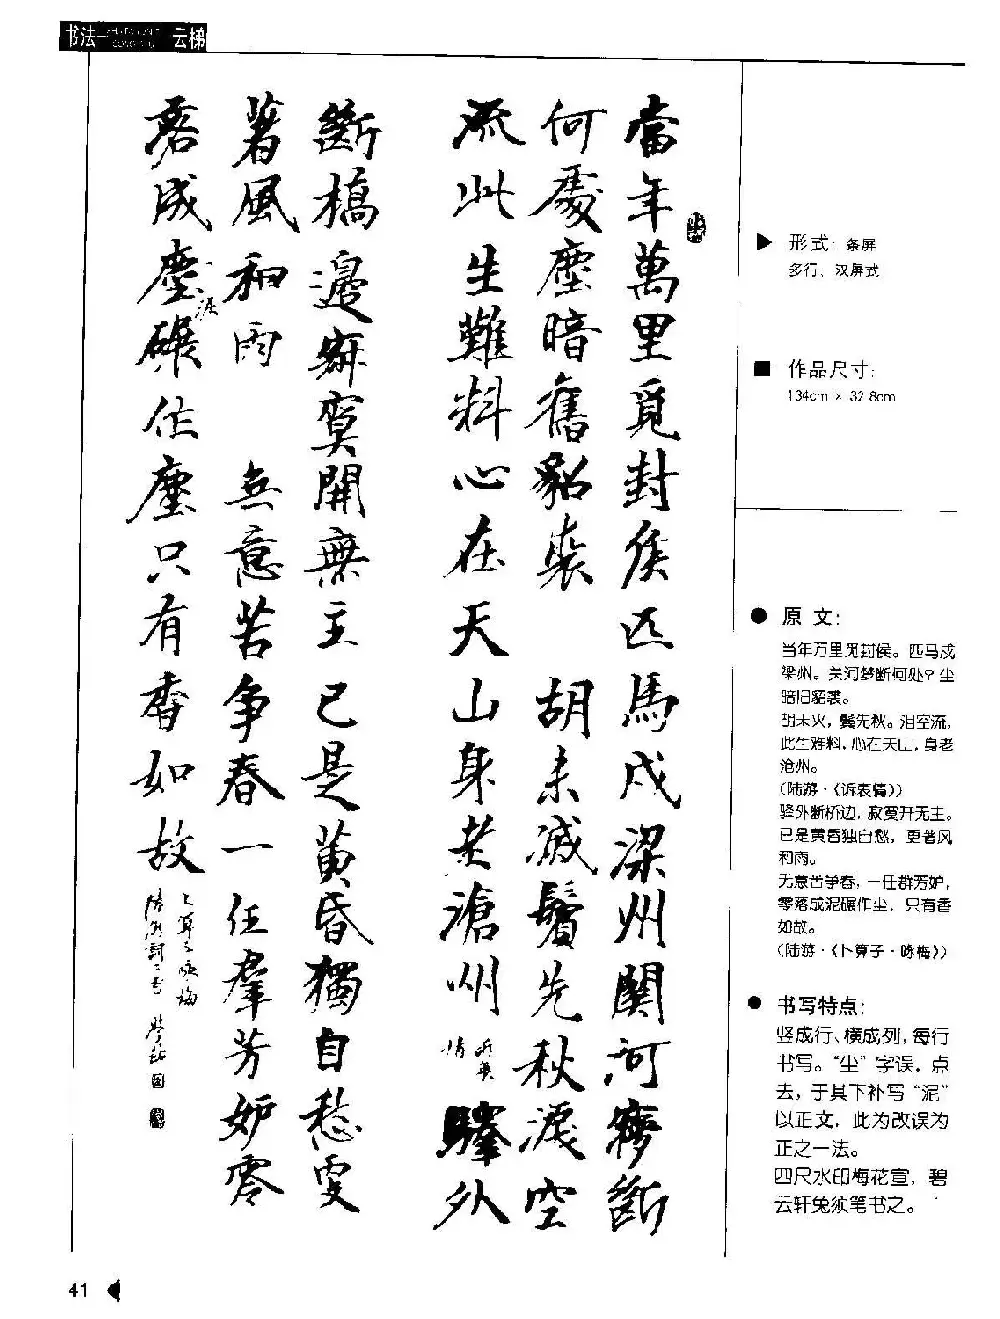 书法一 云梯
當年萬里覓封侯匹馬戍梁州關河夢斷
何處塵暗舊貂裘 胡未滅鬢先秋淚空
流此生難料心在天山身老滄州 訴衷情 驛外
斷橋邊寂寞開無主 已是黄昏獨自愁更
著風和雨 無意苦爭春一任羣芳妒零
落成塵碾作塵只有香如故
泥
卜算子咏梅
陸游詞二首
▶ 形式：条屏
多行、汉屏式
■ 作品尺寸：
134cm × 32.8cm
● 原文：
当年万里觅封侯。匹马戍
梁州。关河梦断何处？尘
暗旧貂裘。
胡未灭，鬓先秋。泪空流，
此生难料，心在天山，身老
沧州。
（陆游·《诉衷情》）
驿外断桥边，寂寞开无主。
已是黄昏独自愁，更著风
和雨。
无意苦争春，一任群芳妒，
零落成泥碾作尘，只有香
如故。
（陆游·《卜算子·咏梅》）
● 书写特点：
竖成行、横成列，每行
书写。“尘”字误，点
去，于其下补写“泥”
以正文，此为改误为
正之一法。
四尺水印梅花宣，碧
云轩兔须笔书之。
41